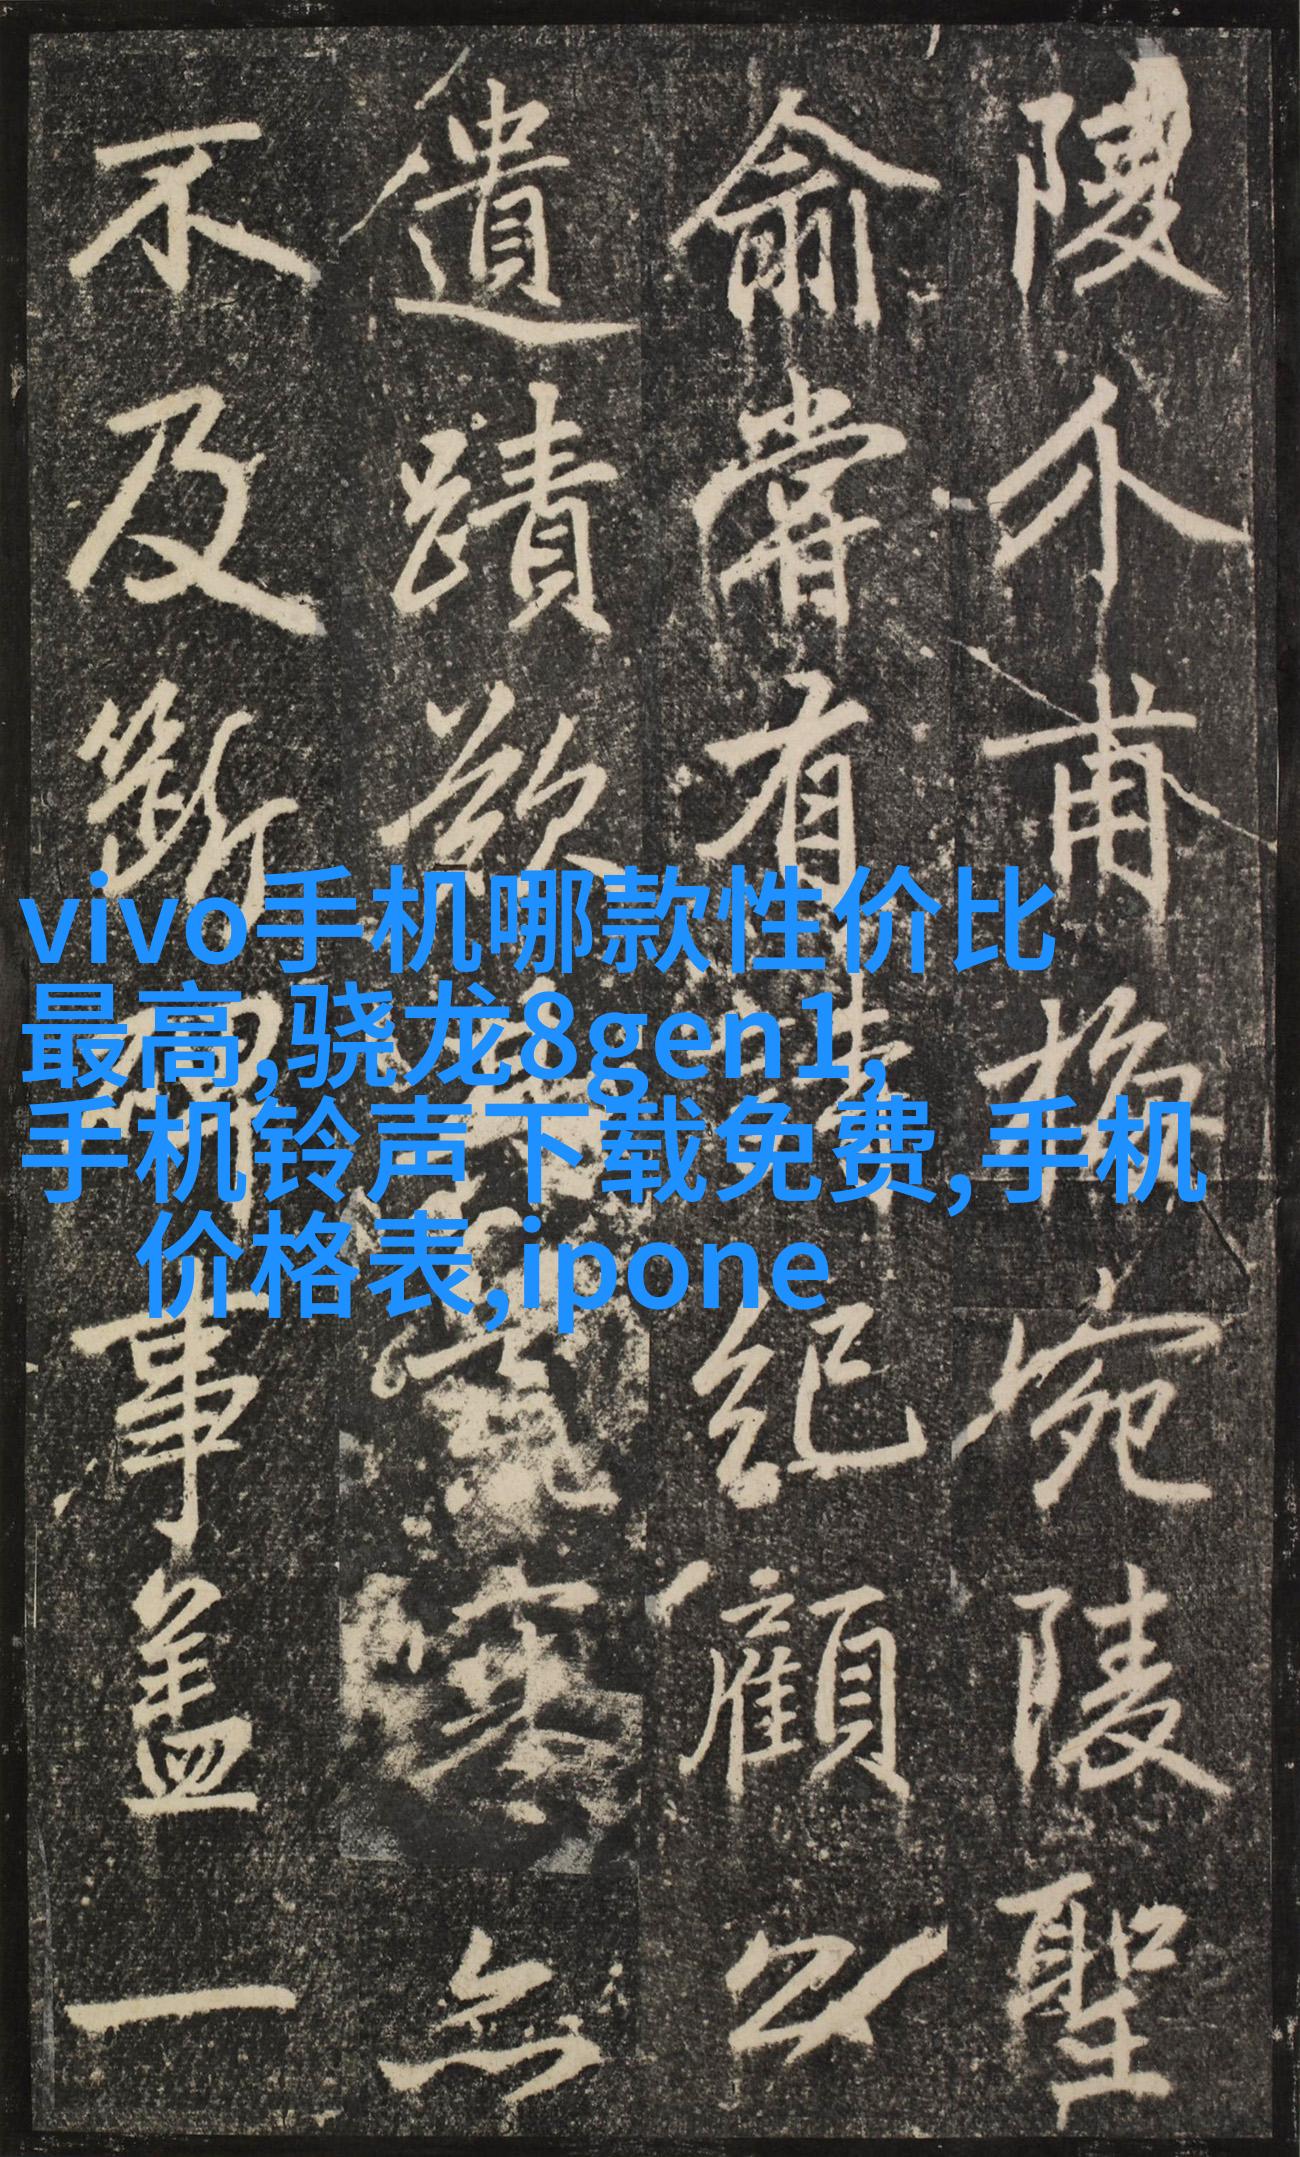 陵介甫松宛陵聖
俞嘗有詩紀顧以
遺蹟欲塞無
不及斷事蓋一
vivo手机哪款性价比
最高,骁龙8gen1,
手机铃声下载免费,手机
价格表,ipone